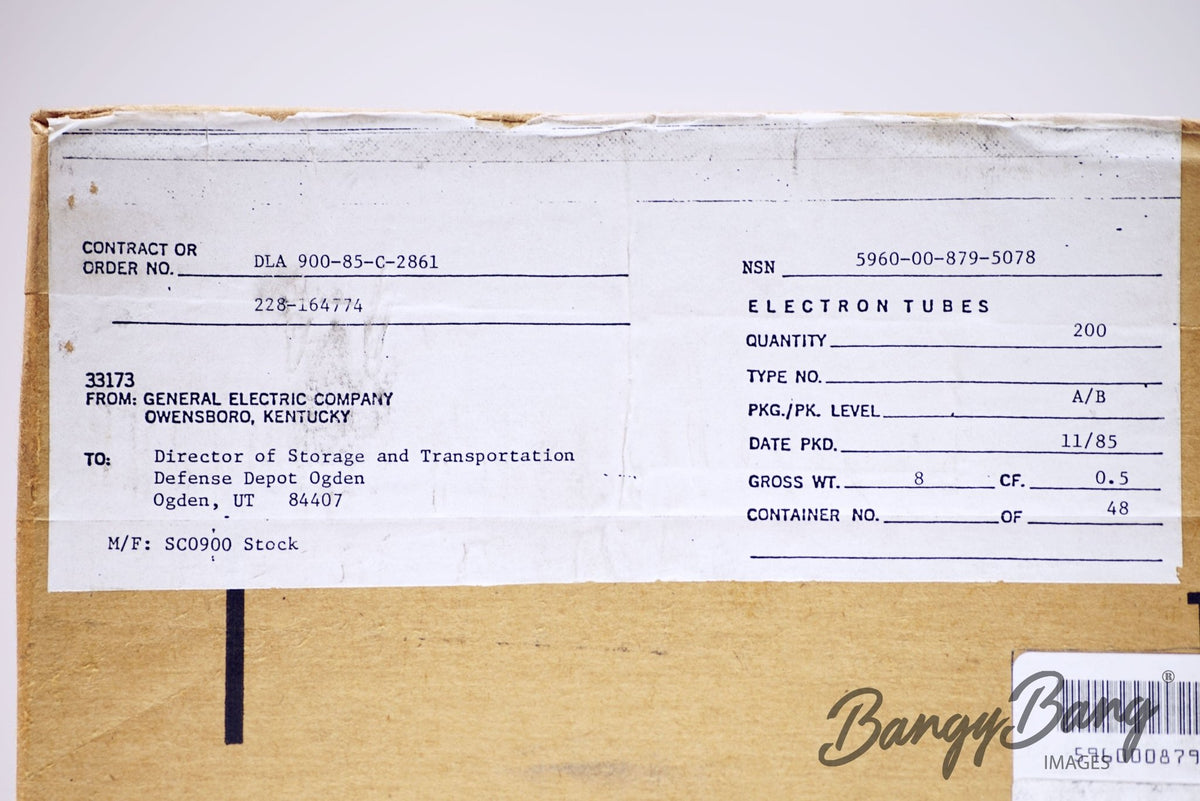 CONTRACT OR
ORDER NO. DLA 900-85-C-2861
228-164774
33173
FROM: GENERAL ELECTRIC COMPANY
OWENSBORO, KENTUCKY
TO: Director of Storage and Transportation
Defense Depot Ogden
Ogden, UT 84407
M/F: SC0900 Stock
NSN 5960-00-879-5078
ELECTRON TUBES
QUANTITY 200
TYPE NO.
PKG./PK. LEVEL A/B
DATE PKD. 11/85
GROSS WT. 8 CF. 0.5
CONTAINER NO. OF 48
596000879
BangyBang ®
IMAGES